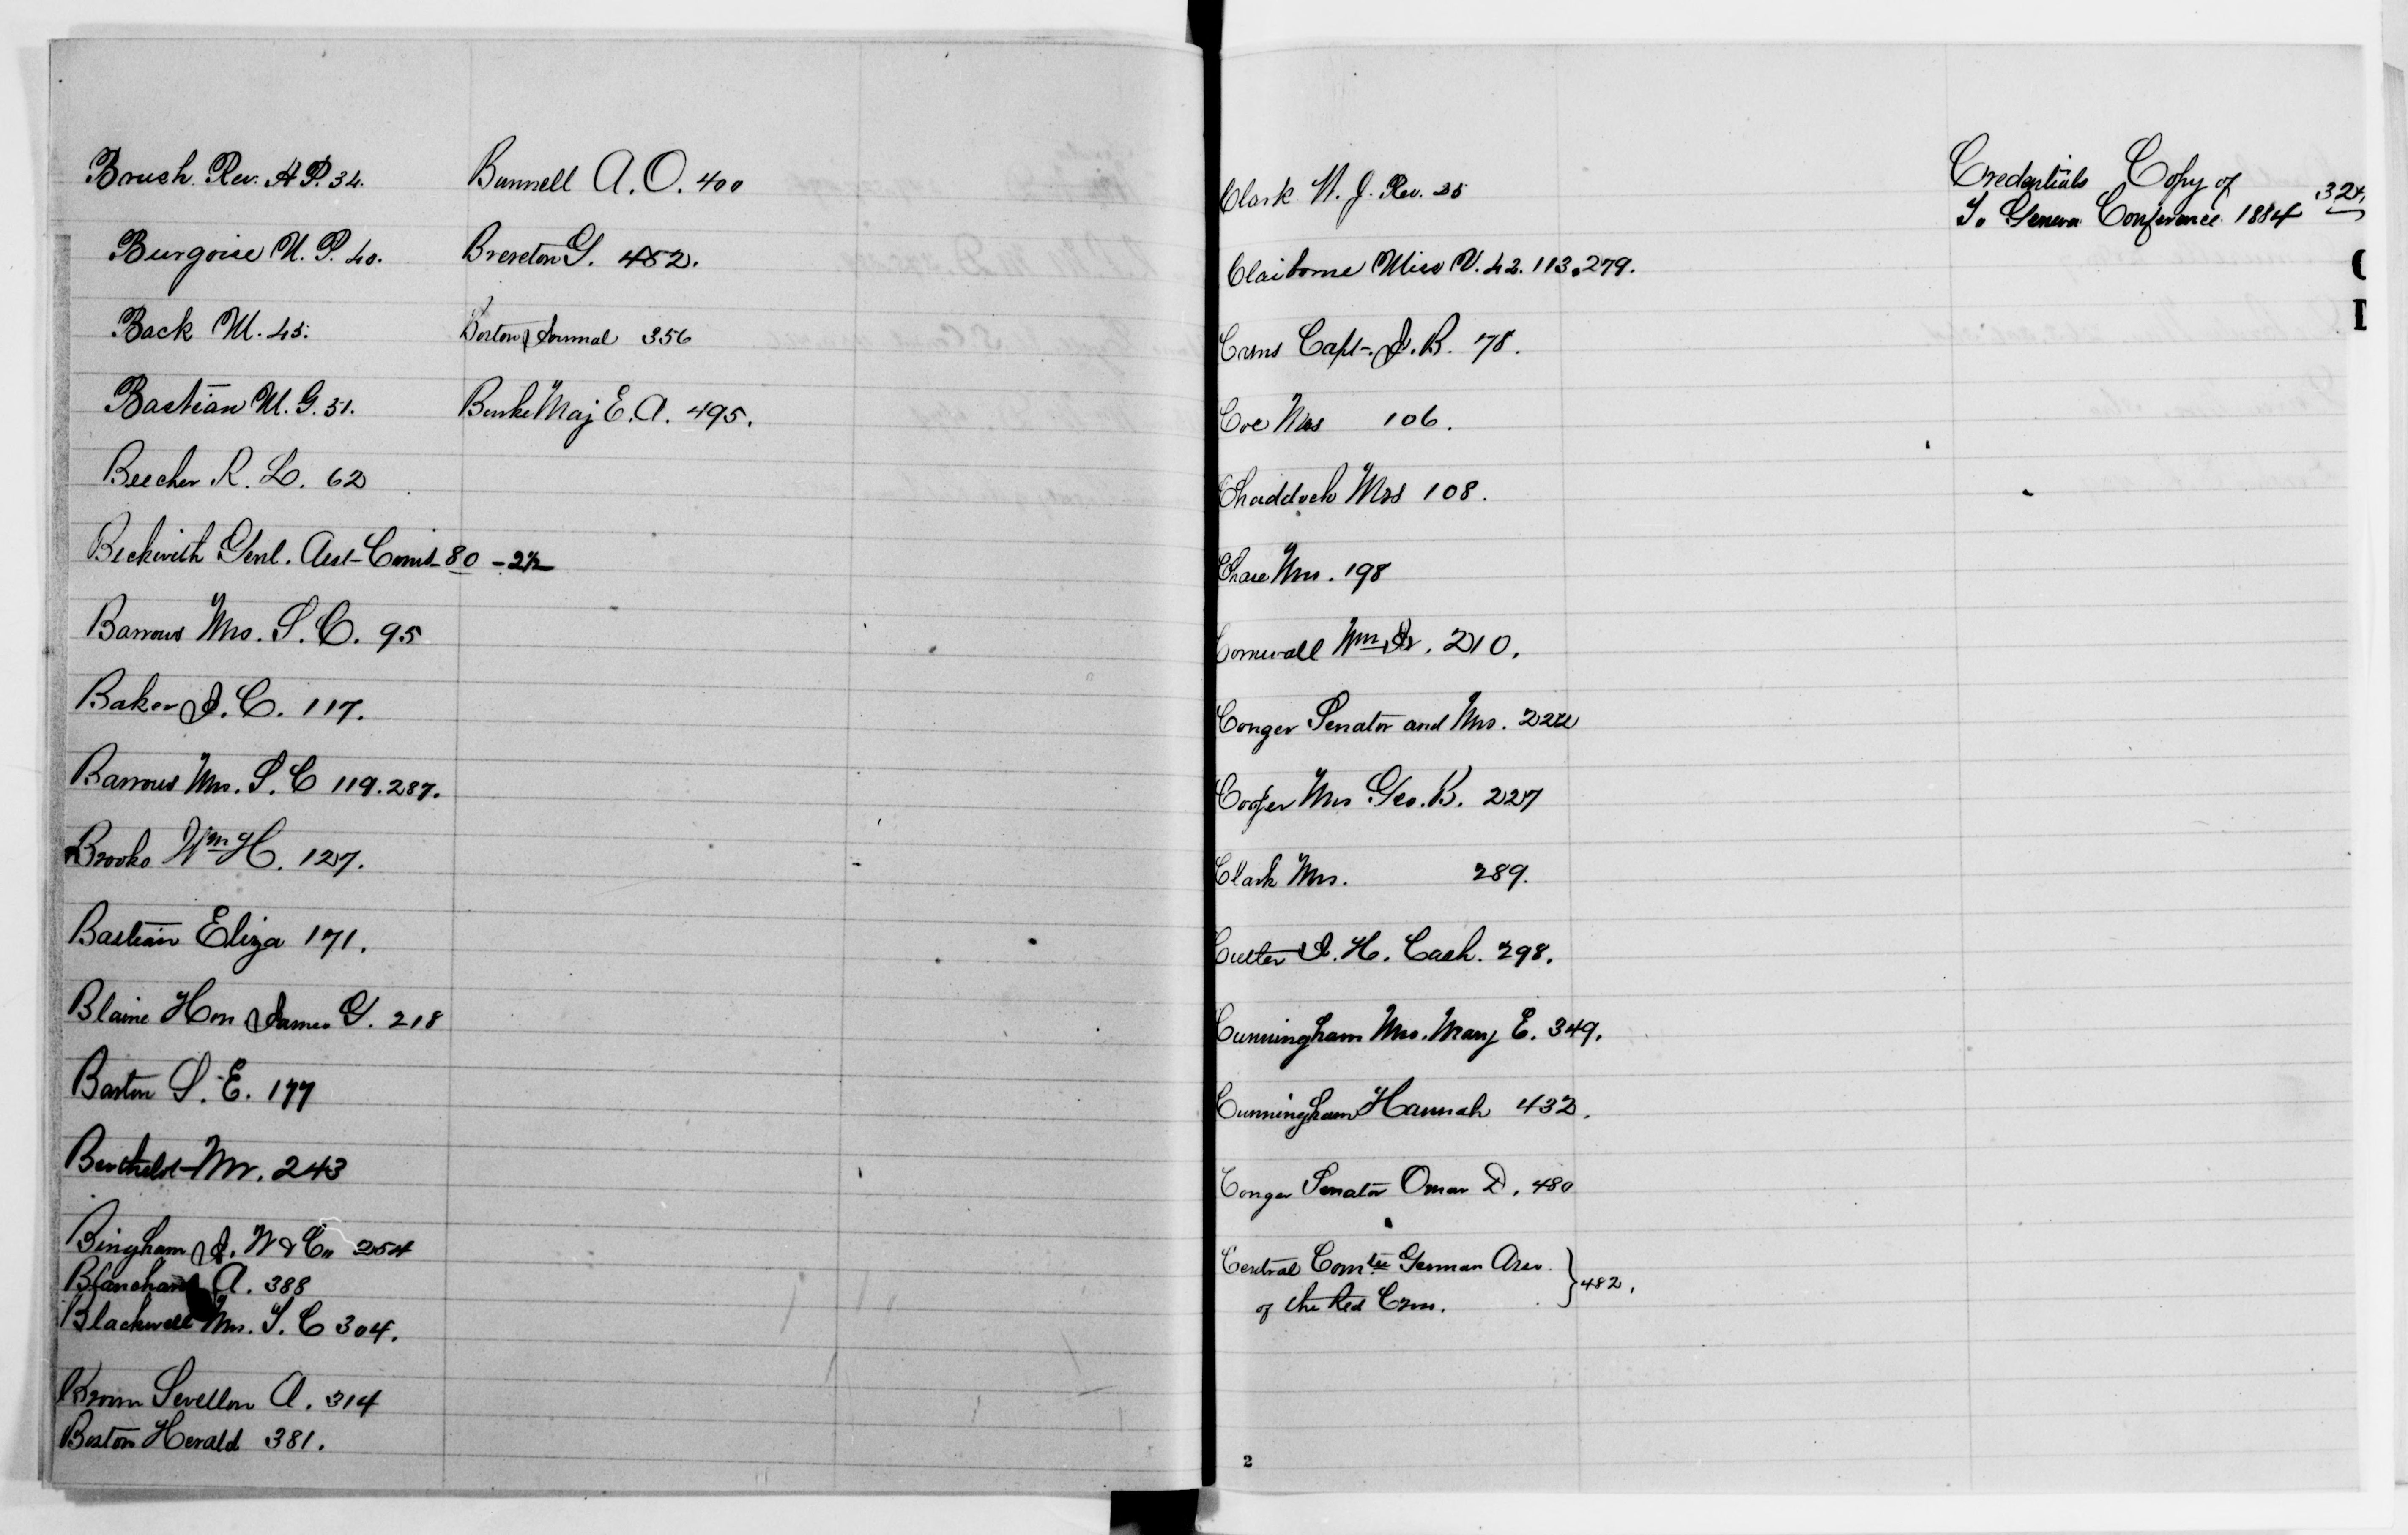 Brush Rev. A P. 34.
Burgoise M. P. 40.
Back M. 45.
Bastian M. G. 51.
Beecher R. L. 62
Beckwith Genl. Asst-Comis- 80
Barrows Mrs. S. C. 95
Baker J. C. 117.
Barrows Mrs. S. C 119. 287.
Brooks Wm H. 127.
Bastian Eliza 171.
Blaine Hon James G. 218
Barton S. E. 177
Berthelot Mr. 243
Bingham J. W & Co 254
Blanchard A. 388
Blackwell Mrs. S. C 304.
Brown Sevellon A. 314
Boston Herald 381.
Bunnell A. O. 400
Brereton G. 452.
Boston Journal 356
Burke Maj E. A. 495.
Clark W. J. Rev. 35
Claiborne Miss V. 42. 113. 279.
Crms Capt. J. B. 78.
Coe Mrs 106.
Chaddock Mrs 108.
Chase Mrs. 198
Cornwall Wm Jr. 210.
Conger Senator and Mrs.
Cooper Mrs Geo. K. 227
Clark Mrs. 289.
Cutter J. H. Cash. 298.
Cunningham Mrs. Mary E. 349.
Cunningham Hannah 432.
Conger Senator Omar D. 480
Central Comtee German Assn.
of the Red Cross. } 482.
Credentials Copy of
To Geneva Conference 1884 324.
C
D
2